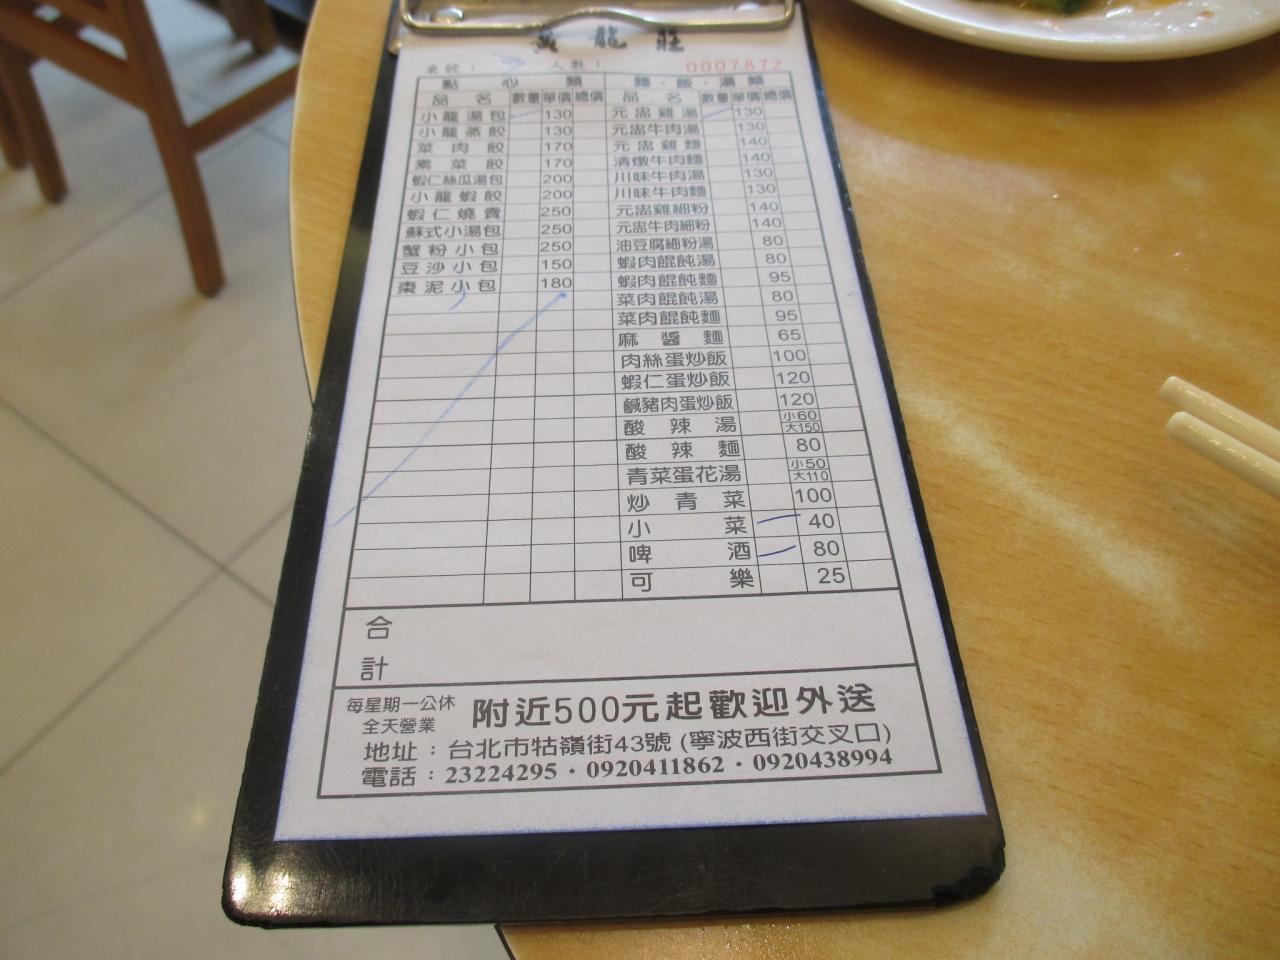 黃龍莊
桌號： 人數： 0007872
點心類 麵·飯·湯類
品名 數量 單價 總價 品名 數量 單價 總價
小龍湯包 130 元盅雞湯 130
小龍蒸餃 130 元盅牛肉湯 130
菜肉餃 170 元盅雞麵 140
素菜餃 170 清燉牛肉麵 140
蝦仁絲瓜湯包 200 川味牛肉湯 130
小龍蝦餃 200 川味牛肉麵 130
蝦仁燒賣 250 元盅雞細粉 140
蘇式小湯包 250 元盅牛肉細粉 140
蟹粉小包 250 油豆腐細粉湯 80
豆沙小包 150 蝦肉餛飩湯 80
棗泥小包 180 蝦肉餛飩麵 95
菜肉餛飩湯 80
菜肉餛飩麵 95
麻醬麵 65
肉絲蛋炒飯 100
蝦仁蛋炒飯 120
鹹豬肉蛋炒飯 120
酸辣湯 小60 大150
酸辣麵 80
青菜蛋花湯 小50 大110
炒青菜 100
小菜 40
啤酒 80
可樂 25
合計
每星期一公休 全天營業 附近500元起歡迎外送
地址：台北市牯嶺街43號(寧波西街交叉口)
電話：23224295·0920411862·0920438994